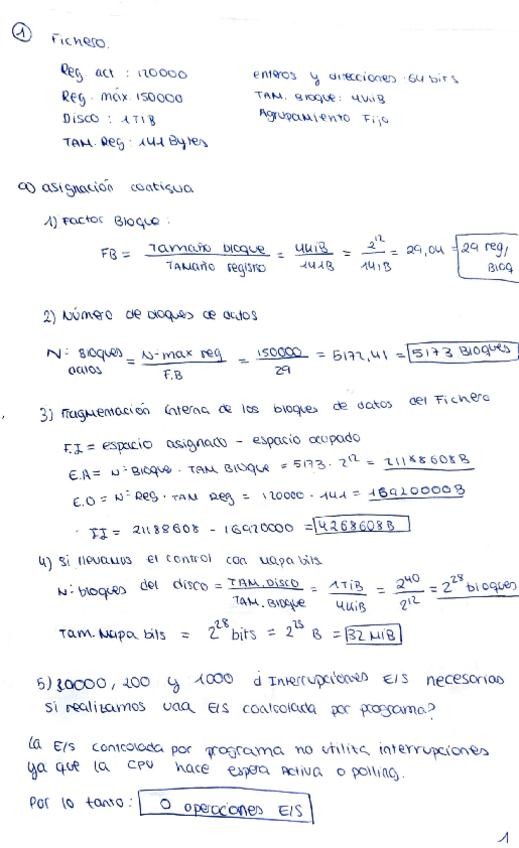 ① Fichero.
Reg act : 120000 enteros y direcciones 64 bits
Reg. máx. 150000 TAM. Bloque: 4KiB
Disco : 1TiB Agrupamiento Fijo
TAM. Reg : 141 Bytes
a) asignación contigua
1) Factor Bloque :
FB = Tamaño bloque / Tamaño registro = 4KiB / 141B = 2^12 / 141B = 29,04 = 29 reg/Bloq
2) Número de bloques de datos
Nº Bloques datos = Nº max reg / F.B = 150000 / 29 = 5172,41 = 5173 Bloques
3) Fragmentación interna de los bloques de datos del Fichero
F.I = espacio asignado - espacio ocupado
E.A = Nº Bloque · TAM Bloque = 5173 · 2^12 = 21188608B
E.O = Nº Reg · TAM Reg = 120000 · 141 = 16920000B
FI = 21188608 - 16920000 = 4268608B
4) Si llevamos el control con mapa bits
Nº bloques del disco = TAM. Disco / TAM. Bloque = 1TiB / 4KiB = 2^40 / 2^12 = 2^28 bloques
Tam. Mapa bits = 2^28 bits = 2^25 B = 32 MiB
5) 20000, 200 y 1000 d Interrupciones E/S necesarias
si realizamos una E/S controlada por programa?
La E/S controlada por programa no utilita interrupciones
ya que la CPU hace espera Activa o polling.
Por lo tanto : 0 operaciones E/S
1